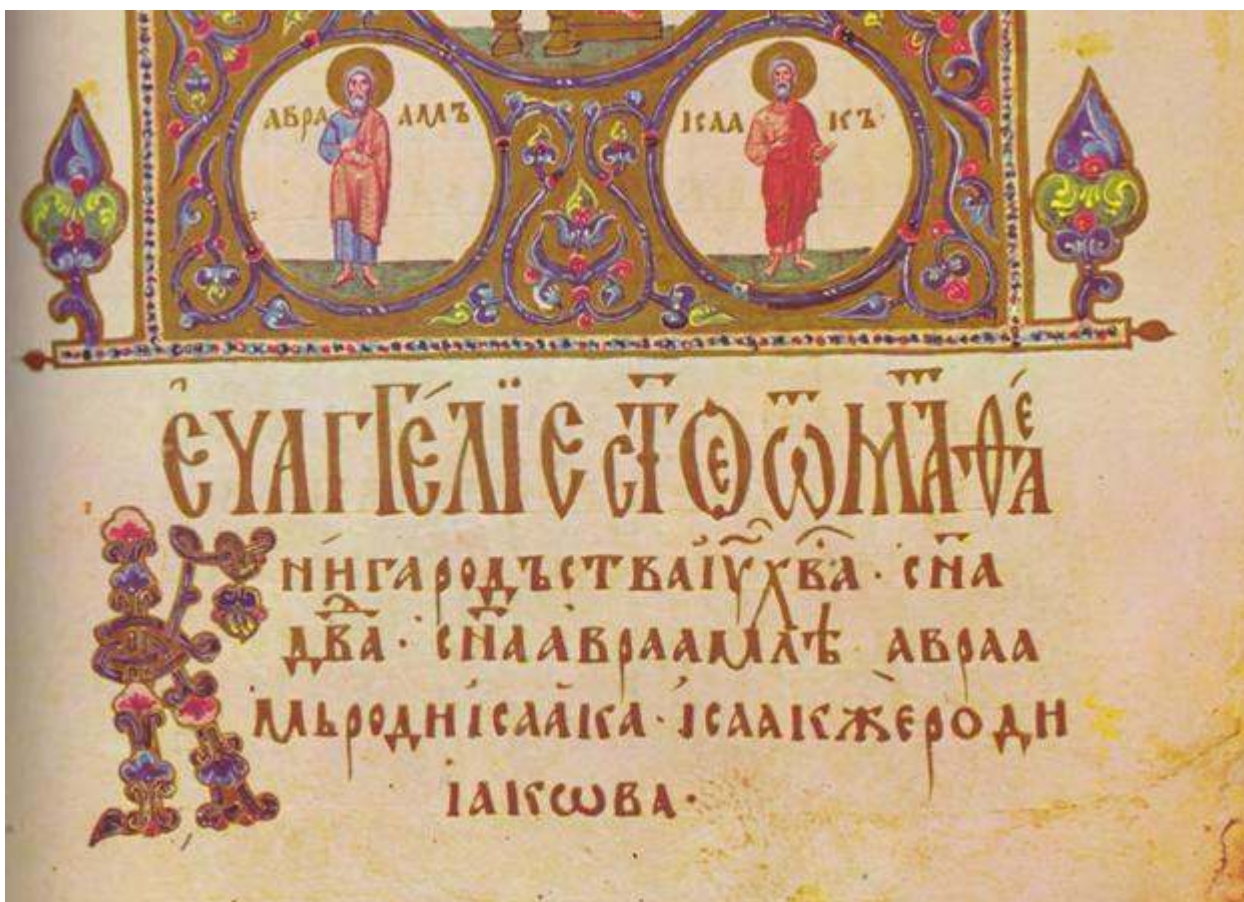 АБРА АМЪ
ІСАА КЪ·
ЄУАГГЕ́ЛЇЄ СТ҃ОЄ Ѿ МАТѲЕ́А
КНИ́ГАРОДЪСТВАІУ҃ХВ҃А · СН҃А
ДВ҃А · СН҃ААВРААМЛѢ · АВРАА
МЬРОДИІСАА́КА · І́СААКЖЕРОДИ
ІАКѠВА ·